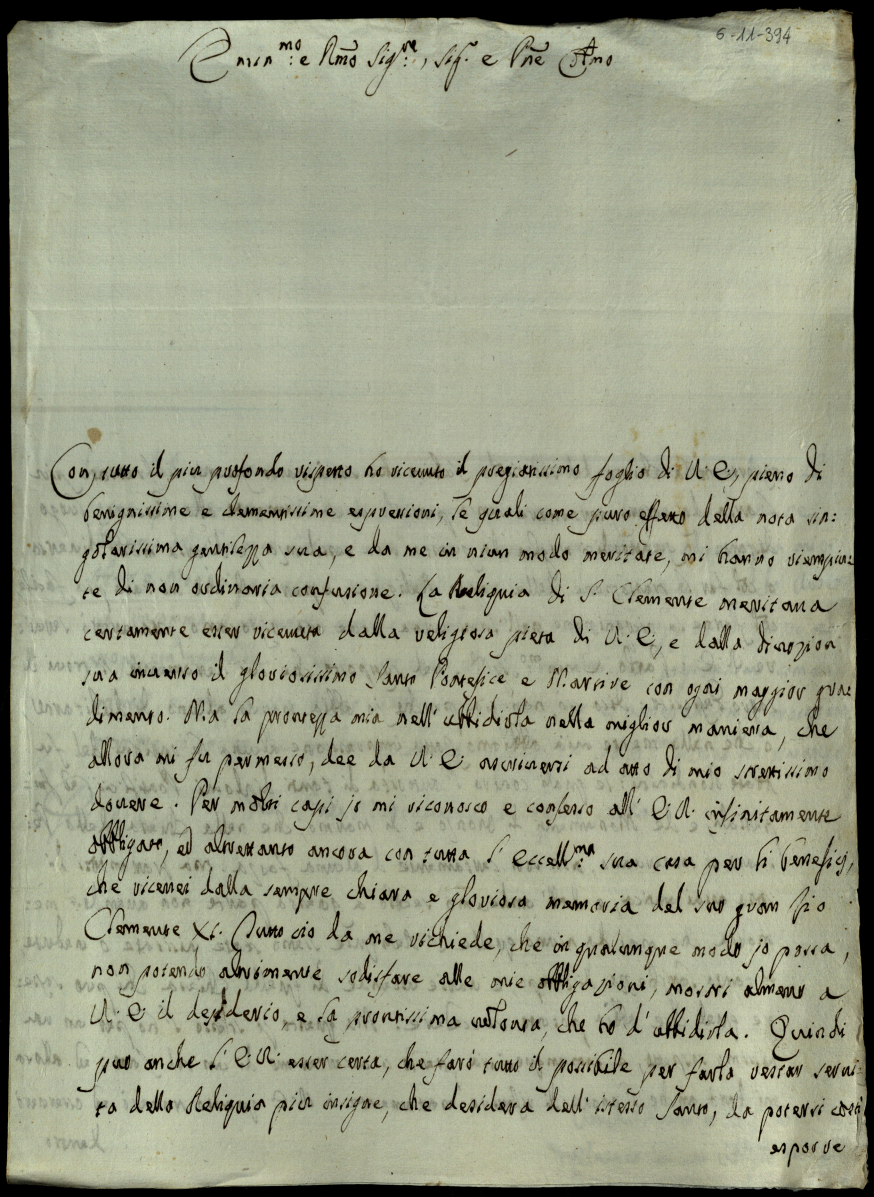 6-11-394
Emin.mo e Rmo Sig.re, Sig.r e Pñe Col.mo
Con tutto il piu profondo rispetto ho ricevuto il pregiatissimo foglio di V. E., pieno di
benignissime e clementissime espressioni, le quali come puro effetto della nota sin:
golarissima gentilezza sua, e da me in niun modo meritate, mi hanno riempiu-
te di non ordinaria confusione. La Reliquia di S. Clemente meritava
certamente esser ricevuta dalla religiosa pieta di V. E., e dalla divozion
sua inverso il gloriosissimo Santo Pontefice e Martire con ogni maggior gra-
dimento. Ma la prontezza mia nell' ubbidirla nella miglior maniera, che
allora mi fu permesso, dee da V. E. ascriversi ad atto di mio strettissimo
dovere. Per molti capi jo mi riconosco e confesso all' E.V. infinitamente
obbligato, ed altrettanto ancora con tutta l' eccell.ma sua casa per li beneficj,
che ricevei dalla sempre chiara e gloriosa memoria del suo gran Zio
Clemente XI. Tutto cio da me richiede, che in qualunque modo jo possa,
non potendo altrimente sodisfare alle mie obbligazioni, mostri almeno a
V. E. il desiderio, e la prontissima volonta, che ho d' ubbidirla. Quindi
puo anche l' E.V. esser certa, che farò tutto il possibile per farla restar servi-
ta della Reliquia piu insigne, che desidera dell' istesso Santo, da potersi costì
esporre